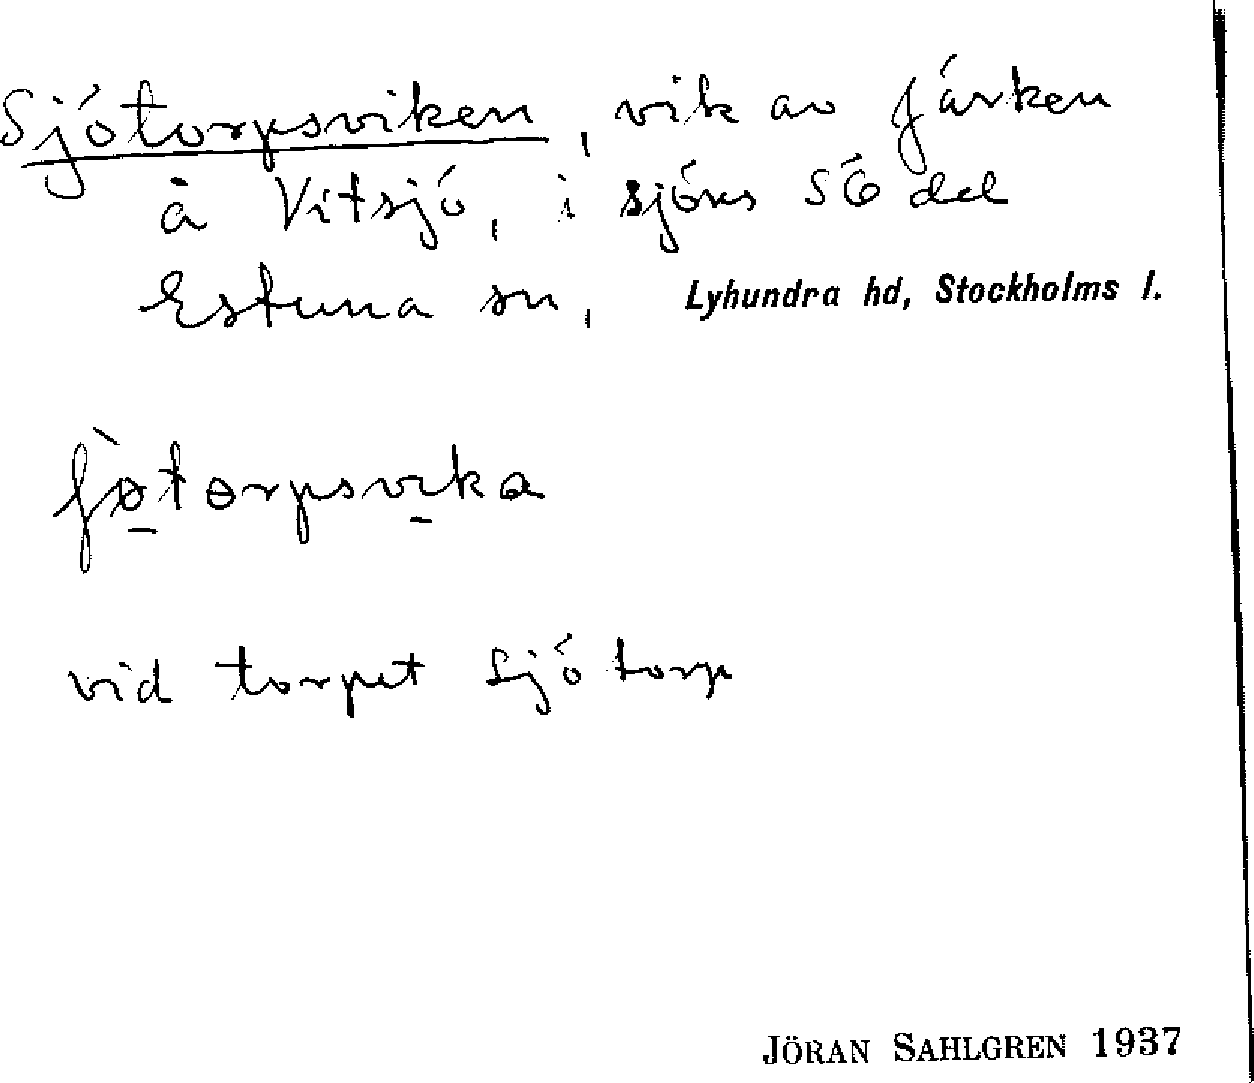 Sjötorpsviken, vik av Järken
å Vitsjö, i sjöns SÖ del
Estuna sn, Lyhundra hd, Stockholms l.
vid torpet Sjötorp
JÖRAN SAHLGREN 1937